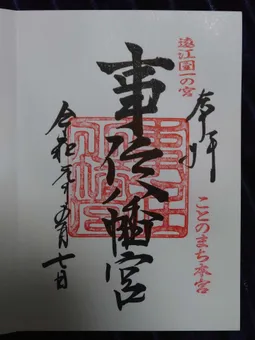 奉拝
遠江國一の宮
ことのまち本宮
事任八幡宮
令和元年五月七日